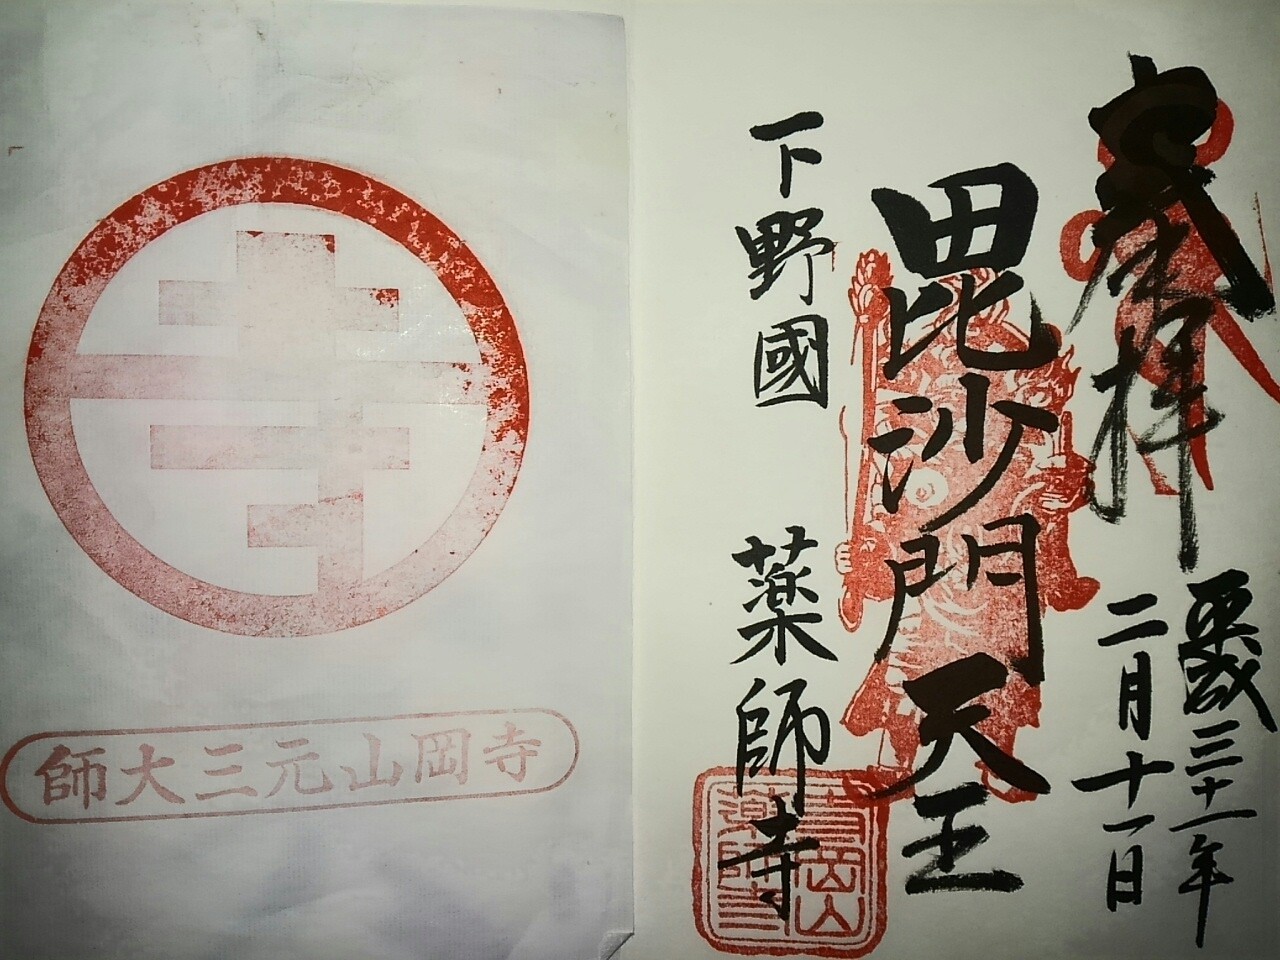 奉拝
平成三十一年
二月十一日
毘沙門天王
下野國 薬師寺
寺岡山
寺
寺岡山元三大師